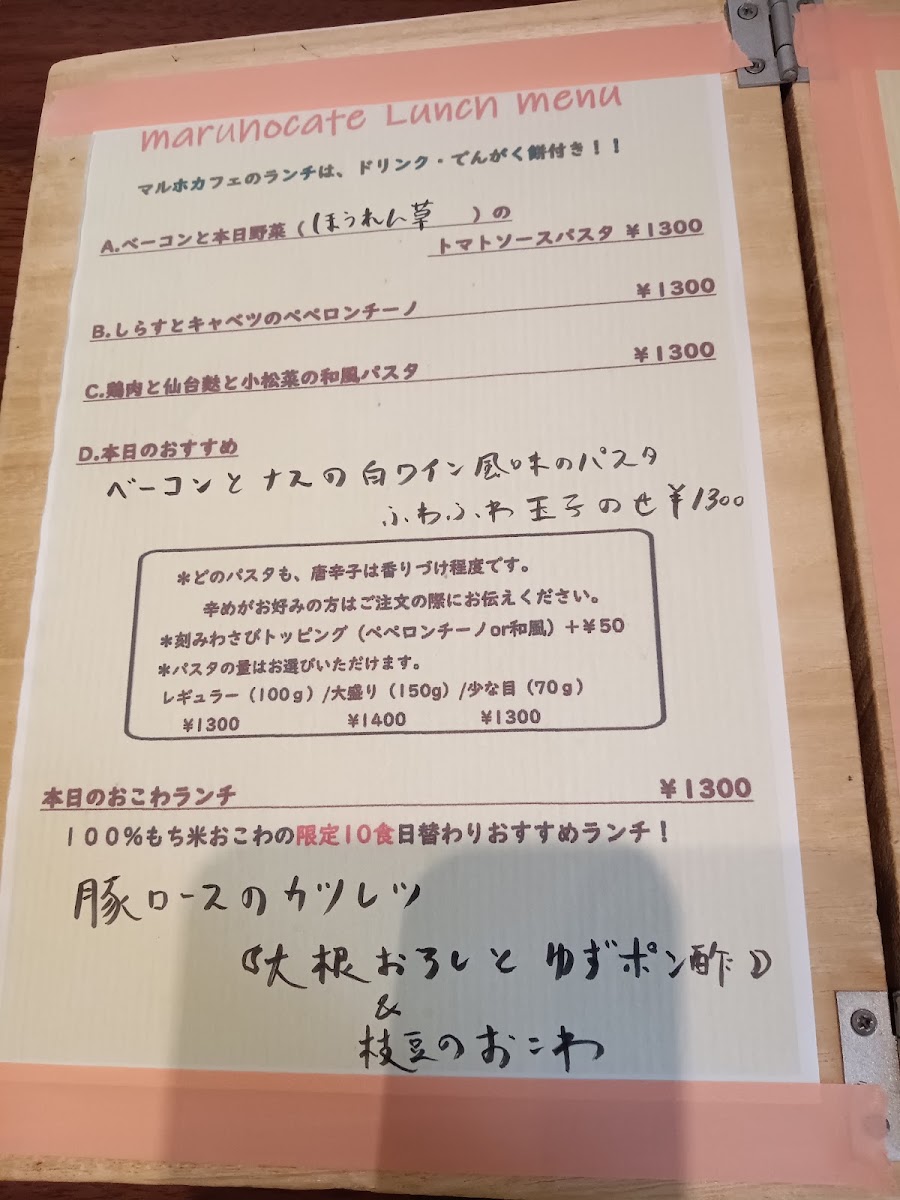 maruhocafe Lunch menu
マルホカフェのランチは、ドリンク・でんがく餅付き！！
A.ベーコンと本日野菜（ほうれん草　）の
トマトソースパスタ ￥1300
B.しらすとキャベツのペペロンチーノ ￥1300
C.鶏肉と仙台麩と小松菜の和風パスタ ￥1300
D.本日のおすすめ
ベーコンとナスの白ワイン風味のパスタ
ふわふわ玉子のせ ￥1300
＊どのパスタも、唐辛子は香りづけ程度です。
辛めがお好みの方はご注文の際にお伝えください。
＊刻みわさびトッピング（ペペロンチーノor和風）＋￥50
＊パスタの量はお選びいただけます。
レギュラー（100ｇ）/大盛り（150g）/少な目（70ｇ）
￥1300 ￥1400 ￥1300
本日のおこわランチ ￥1300
１００％もち米おこわの限定10食日替わりおすすめランチ！
豚ロースのカツレツ
《大根おろしとゆずポン酢》
&
枝豆のおこわ